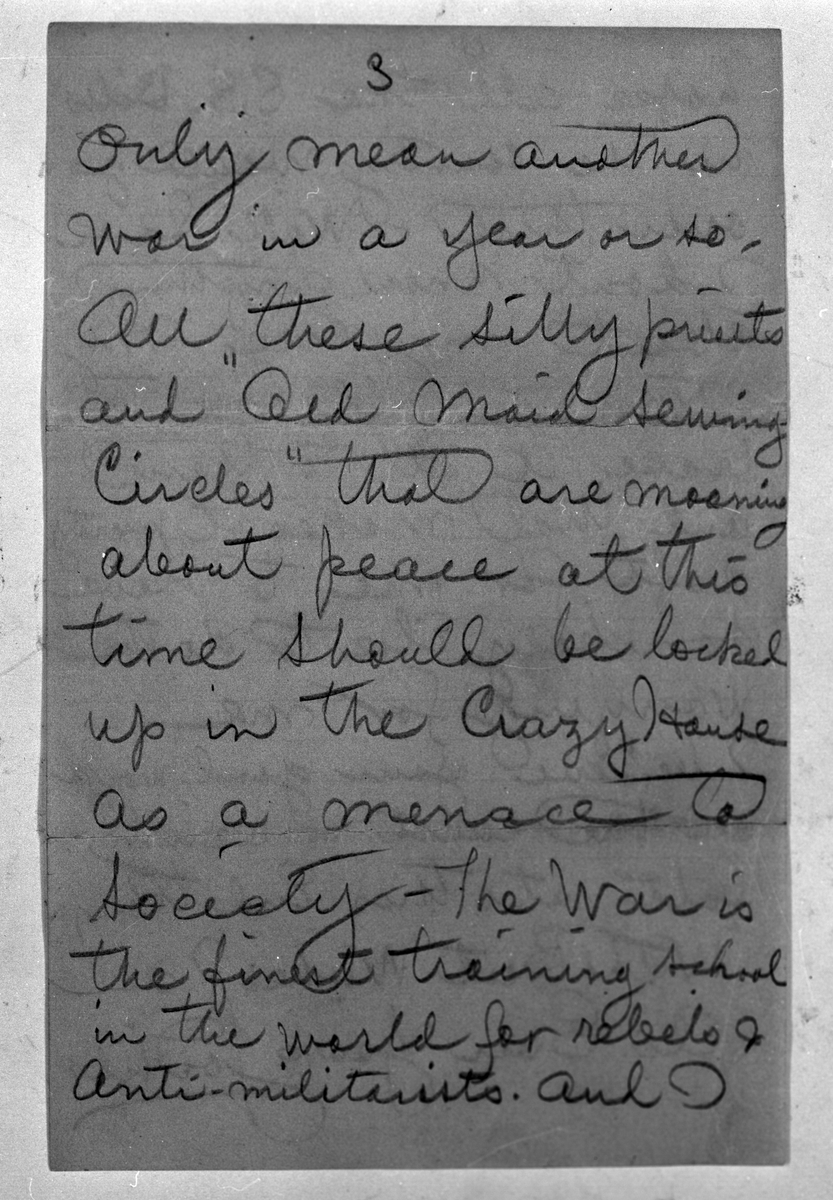 3
Only mean another
War in a year or so.
All these silly priests
and "Old Maid Sewing
Circles" that are moaning
about peace at this
time should be locked
up in the Crazy House
as a menace to
Society - The War is
the finest training school
in the world for rebels &
Anti-militarists. And I